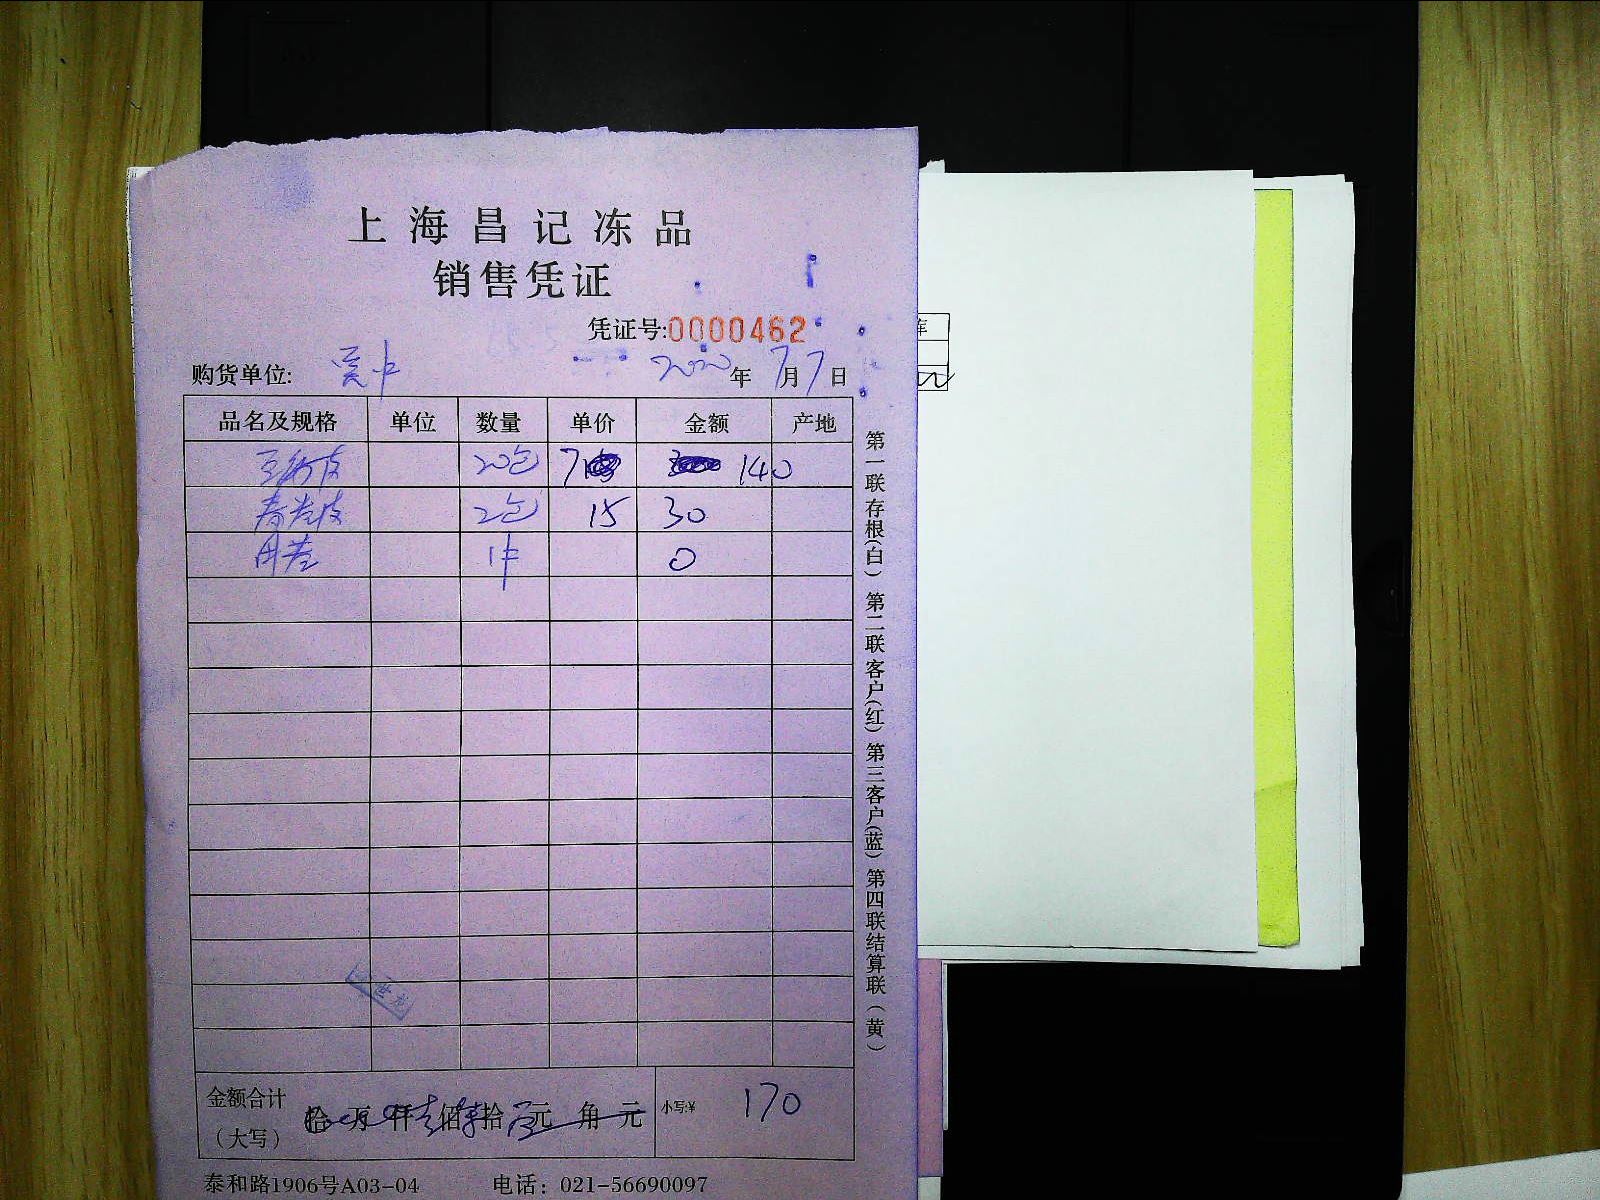 上海昌记冻品
销售凭证
凭证号:0000462
购货单位: 2020年7月7日
品名及规格 单位 数量 单价 金额 产地
20包 7 140
春卷皮 2包 15 30
1件 0
金额合计
(大写) 拾 万 仟 佰 拾 元 角 元 小写:¥ 170
泰和路1906号A03-04 电话：021-56690097
第一联存根(白) 第二联客户(红) 第三客户(蓝) 第四联结算联(黄)